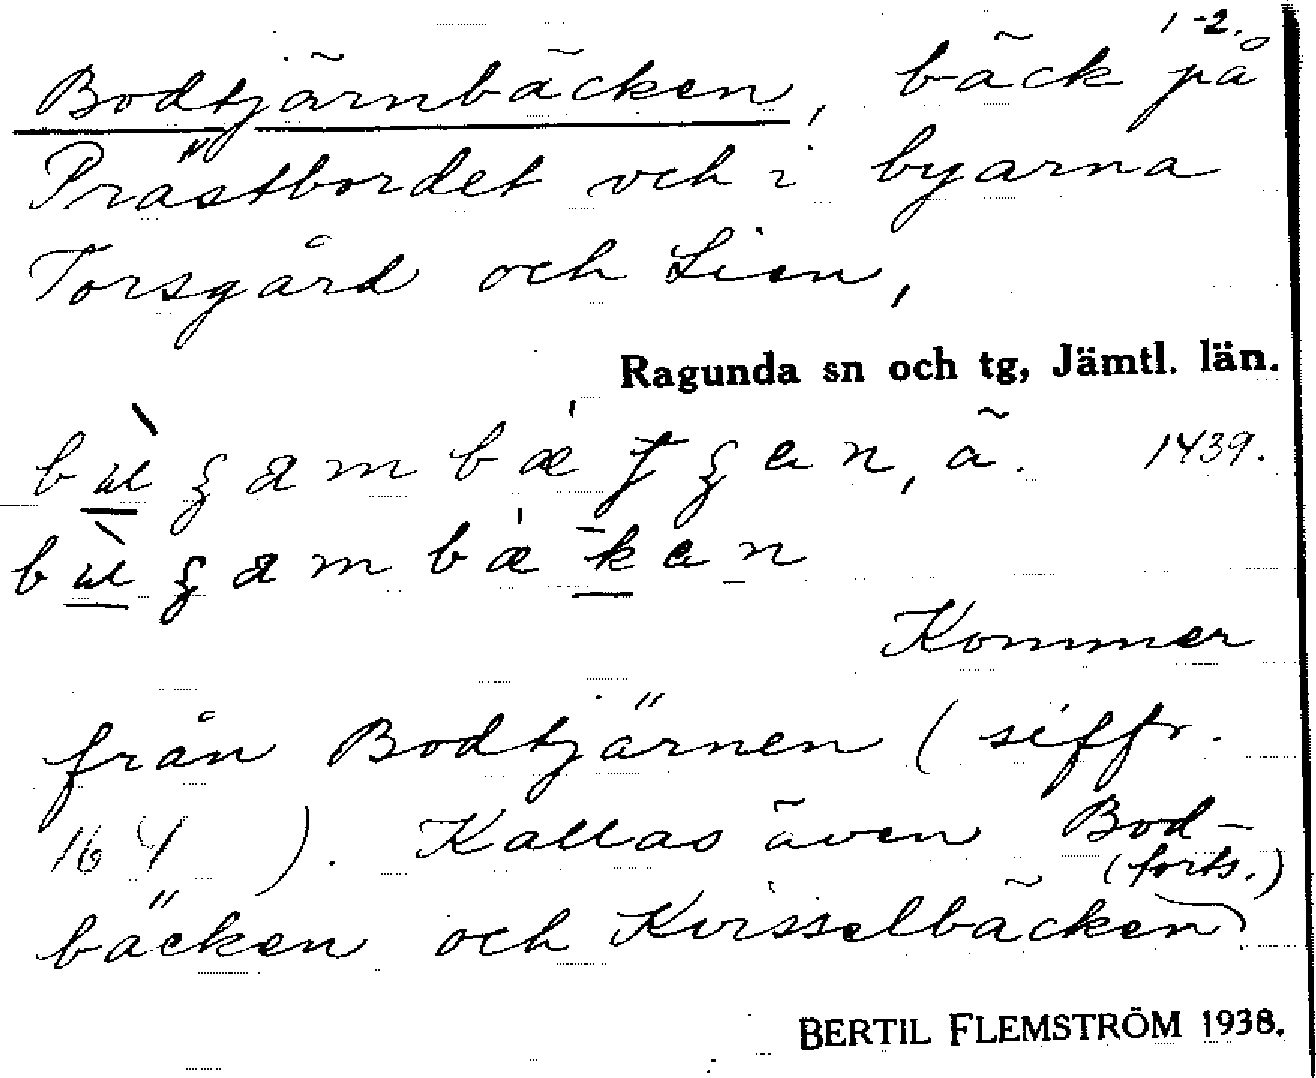 1-2.
Bodtjärnbäcken, bäck på
Prästbordet och i byarna
Torsgård och Lien,
Ragunda sn och tg, Jämtl. län.
1439.
Kommer
från Bodtjärnen (siffr.
164 ). Kallas även Bod-
(forts.)
bäcken och Kvisselbäcken
BERTIL FLEMSTRÖM 1938.